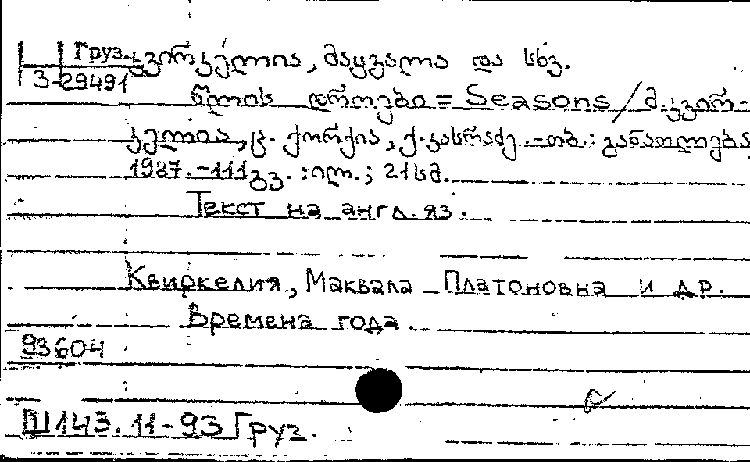 Груз. კვირკელია, მაყვალა და სხვ.
3-29491
წლის დროები = Seasons / მ. კვირ-
კელია, ც. ქორქია, ქ. კასრაძე. -თბ.: განათლება
1987. -111 გვ. : ილ. ; 21 სმ.
Текст на англ. яз.
Квиркелия, Маквала Платоновна и др.
Времена года.
93604
Ш143.11-93 Груз.